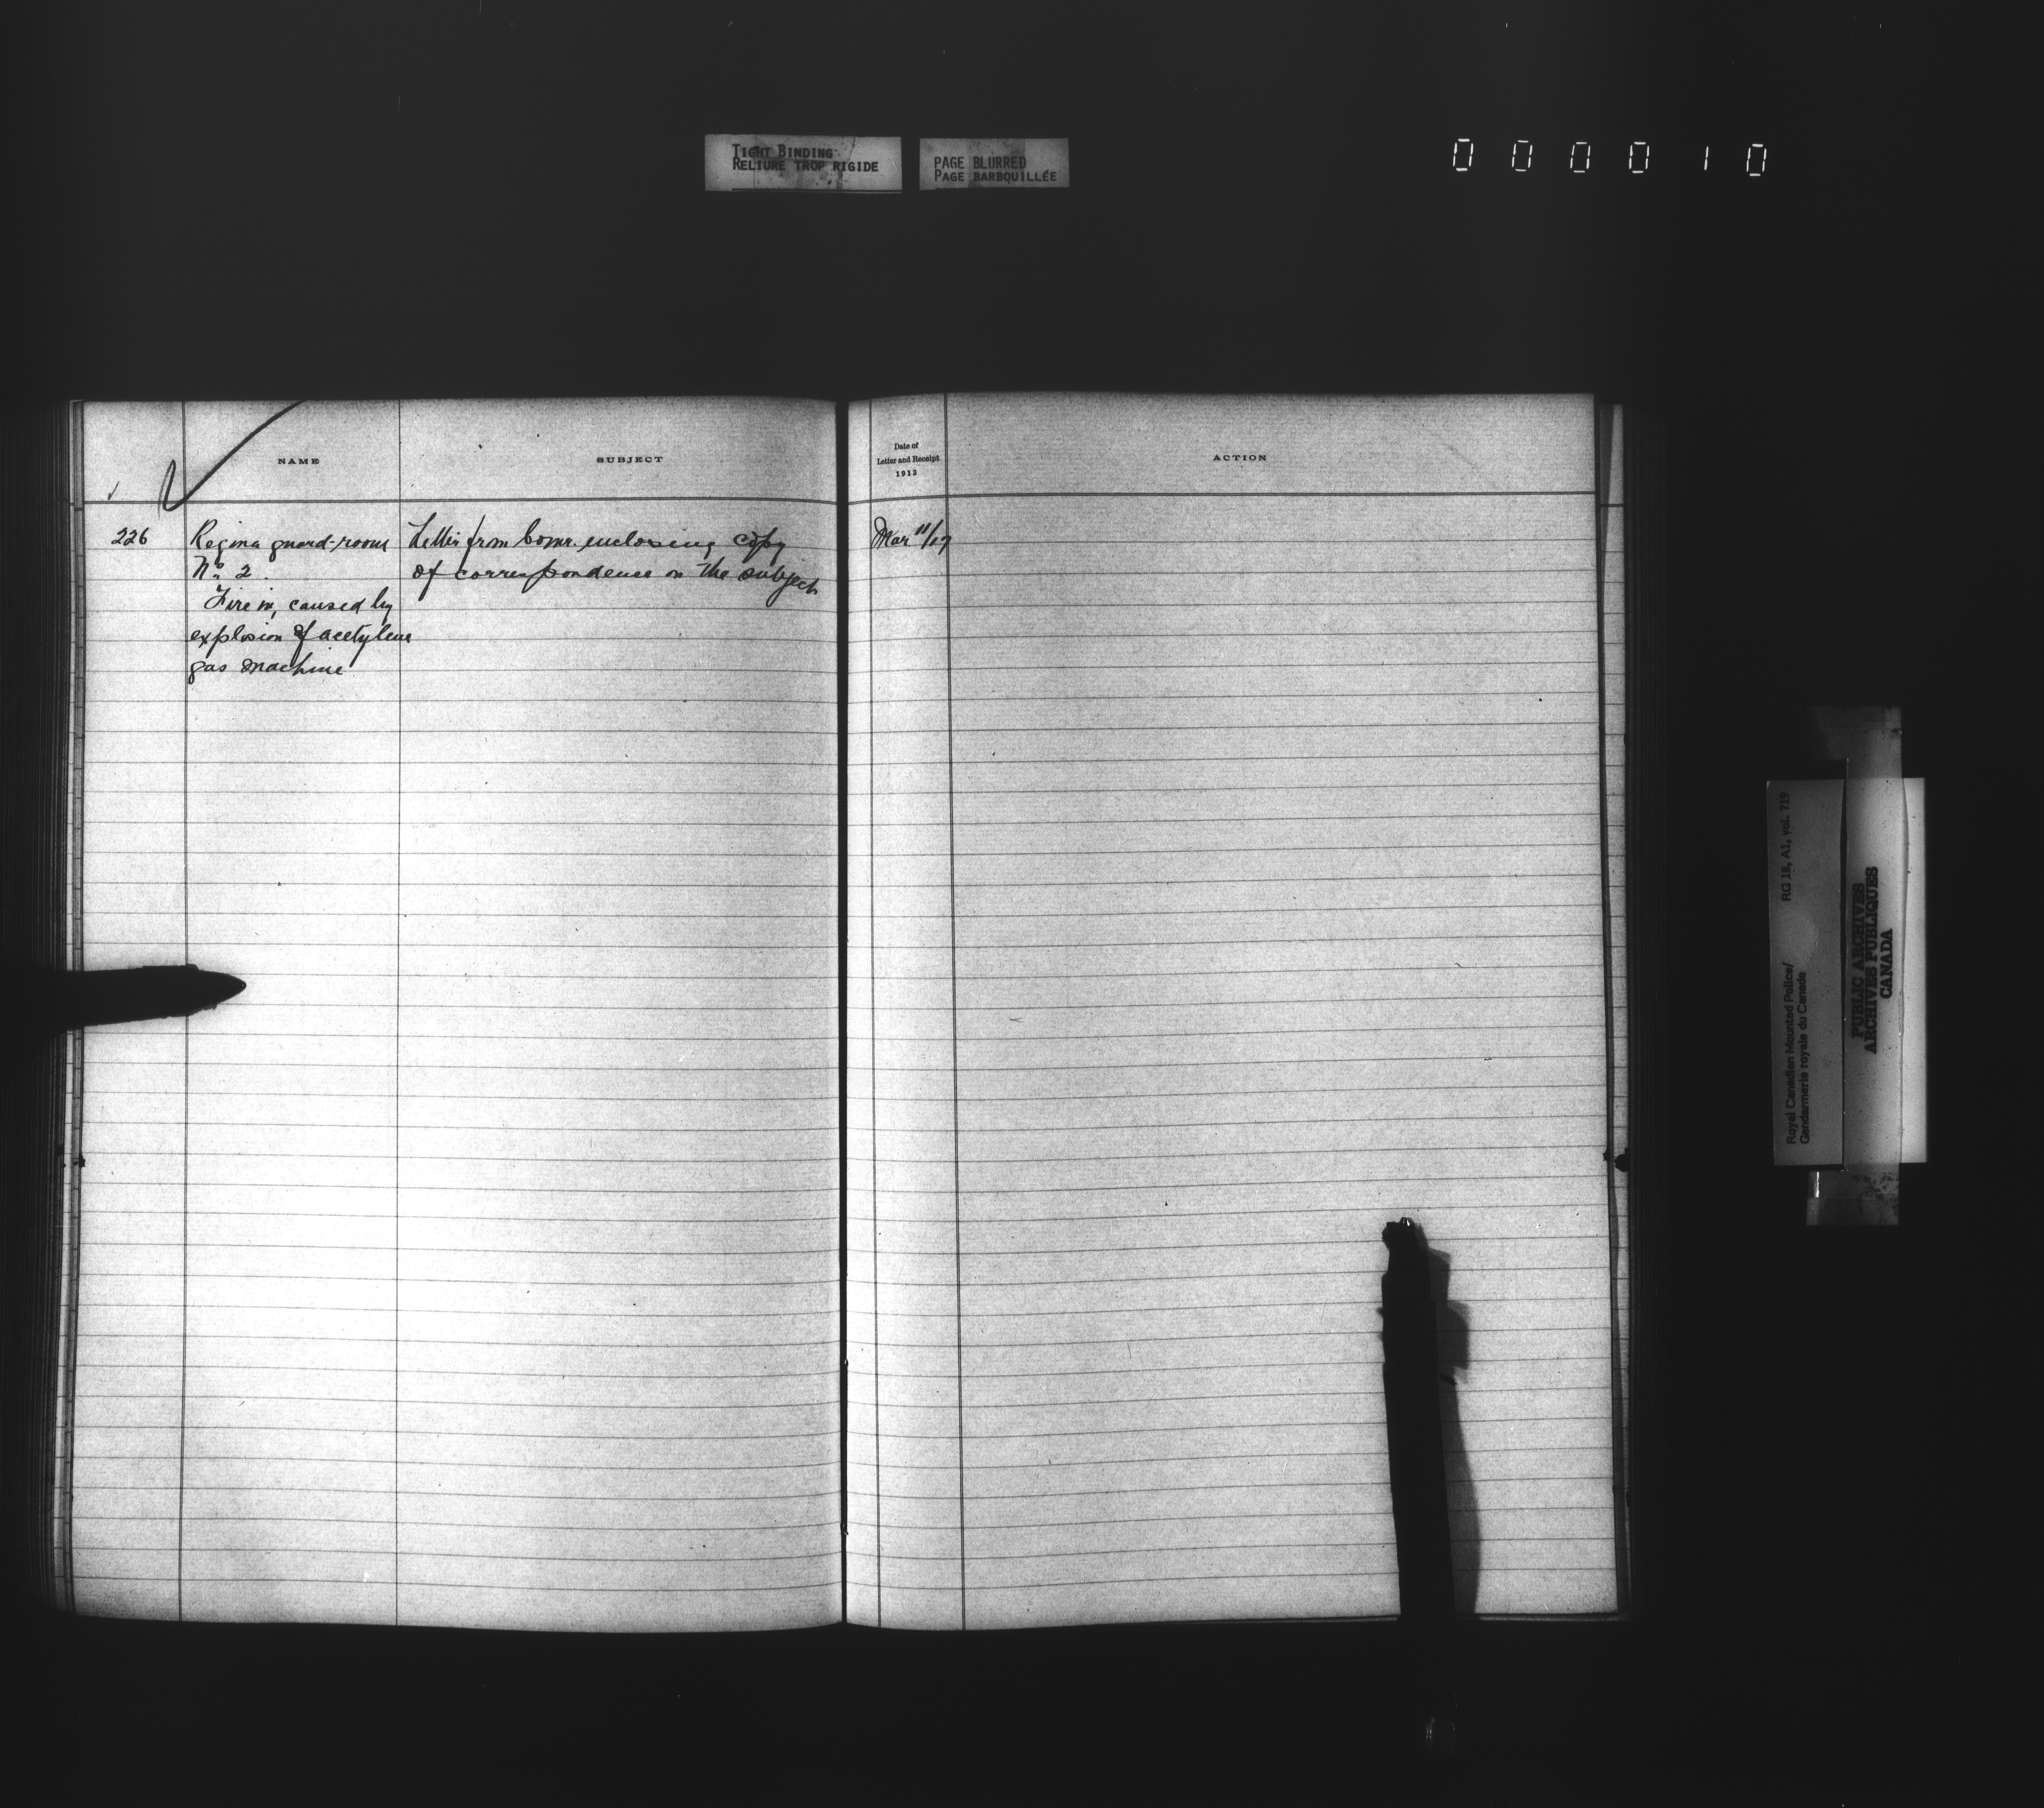 TIGHT BINDING
RELIURE TROP RIGIDE
PAGE BLURRED
PAGE BARBOUILLÉE
000010
NAME
SUBJECT
Date of
Letter and Receipt
1913
ACTION
226
Regina guard-room
No 2.
Fire in, caused by
explosion of acetylene
gas machine
Letter from Comr. enclosing copy
of correspondence on the subject
Mar 11/17
Royal Canadian Mounted Police/
Gendarmerie royale du Canada
RG 18, A1, vol. 719
PUBLIC ARCHIVES
ARCHIVES PUBLIQUES
CANADA